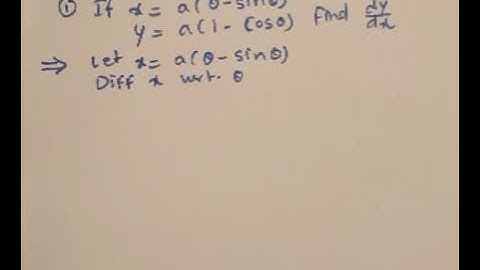 ① If x = a(θ-sinθ)
y = a(1- cosθ) find dy/dx
⇒ Let x = a(θ-sinθ)
Diff x wrt. θ